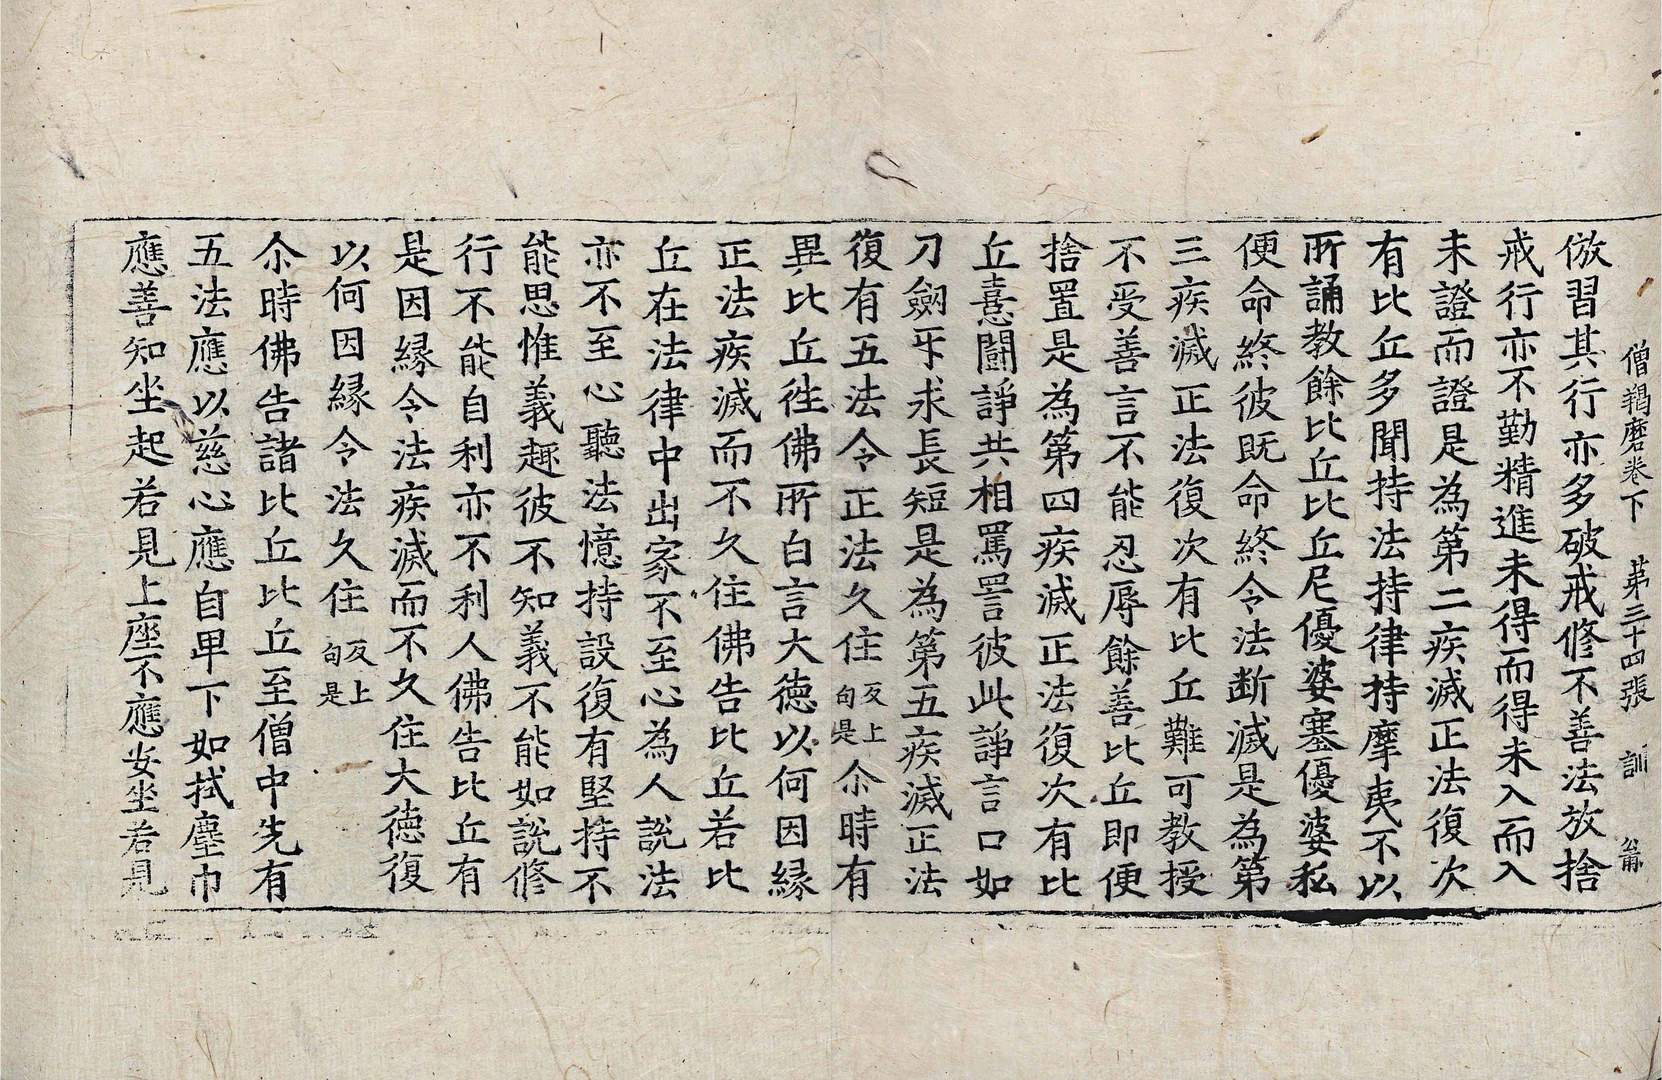 僧羯磨卷下 第三十四張 訓
倣習其行亦多破戒修不善法放捨
戒行亦不勤精進未得而得未入而入
未證而證是為第二疾滅正法復次
有比丘多聞持法持律持摩夷不以
所誦教餘比丘比丘尼優婆塞優婆私
便命終彼既命終令法断滅是為第
三疾滅正法復次有比丘難可教授
不受善言不能忍辱餘善比丘即便
捨置是為第四疾滅正法復次有比
丘憙鬪諍共相罵詈彼此諍言口如
刀劒牙求長短是為第五疾滅正法
復有五法令正法久住反上句是尒時有
異比丘徃佛所白言大德以何因緣
正法疾滅而不久住佛告比丘若比
丘在法律中出家不至心為人說法
亦不至心聽法憶持設復有堅持不
能思惟義趣彼不知義不能如說修
行不能自利亦不利人佛告比丘有
是因縁令法疾滅而不久住大德復
以何因縁令法久住反上句是
尒時佛告諸比丘比丘至僧中先有
五法應以慈心應自卑下如拭塵巾
應善知坐起若見上座不應安坐若見